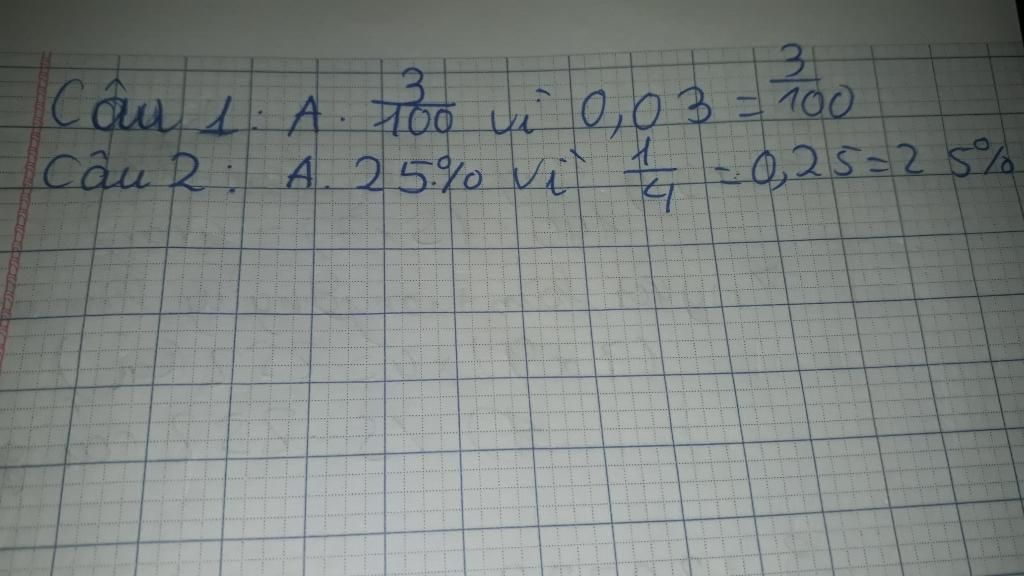 Câu 1: A. 3/100 vì 0,03 = 3/100
Câu 2: A. 25% vì 1/4 = 0,25 = 25%